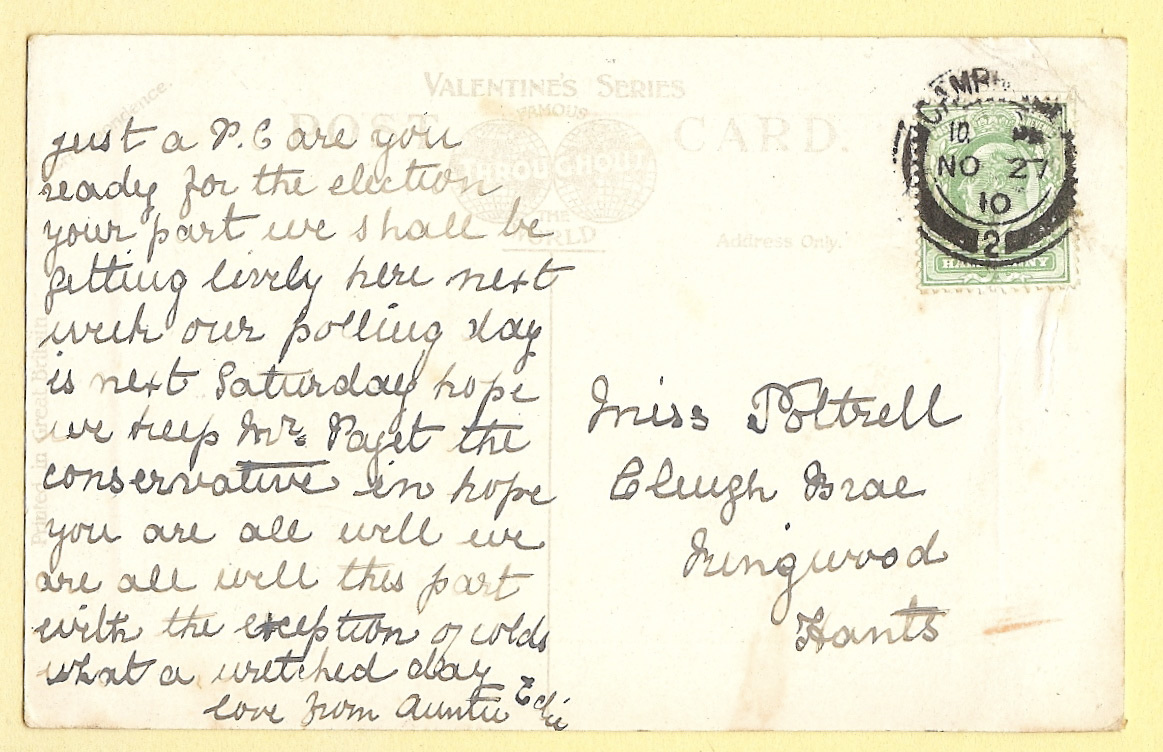 VALENTINE'S SERIES
FAMOUS
POST CARD.
THROUGHOUT
THE
WORLD
Address Only.
Printed in Great Britain
just a P.C are you
ready for the election
your part we shall be
getting lively here next
week our polling day
is next Saturday hope
we keep Mr. Paget the
conservative in hope
you are all well we
are all well this part
with the exception of colds
what a wretched day
love from Auntie Edie
10
NO 27
10
2
HALFPENNY
Miss Poltrell
Cleugh Brae
Ringwood
Hants